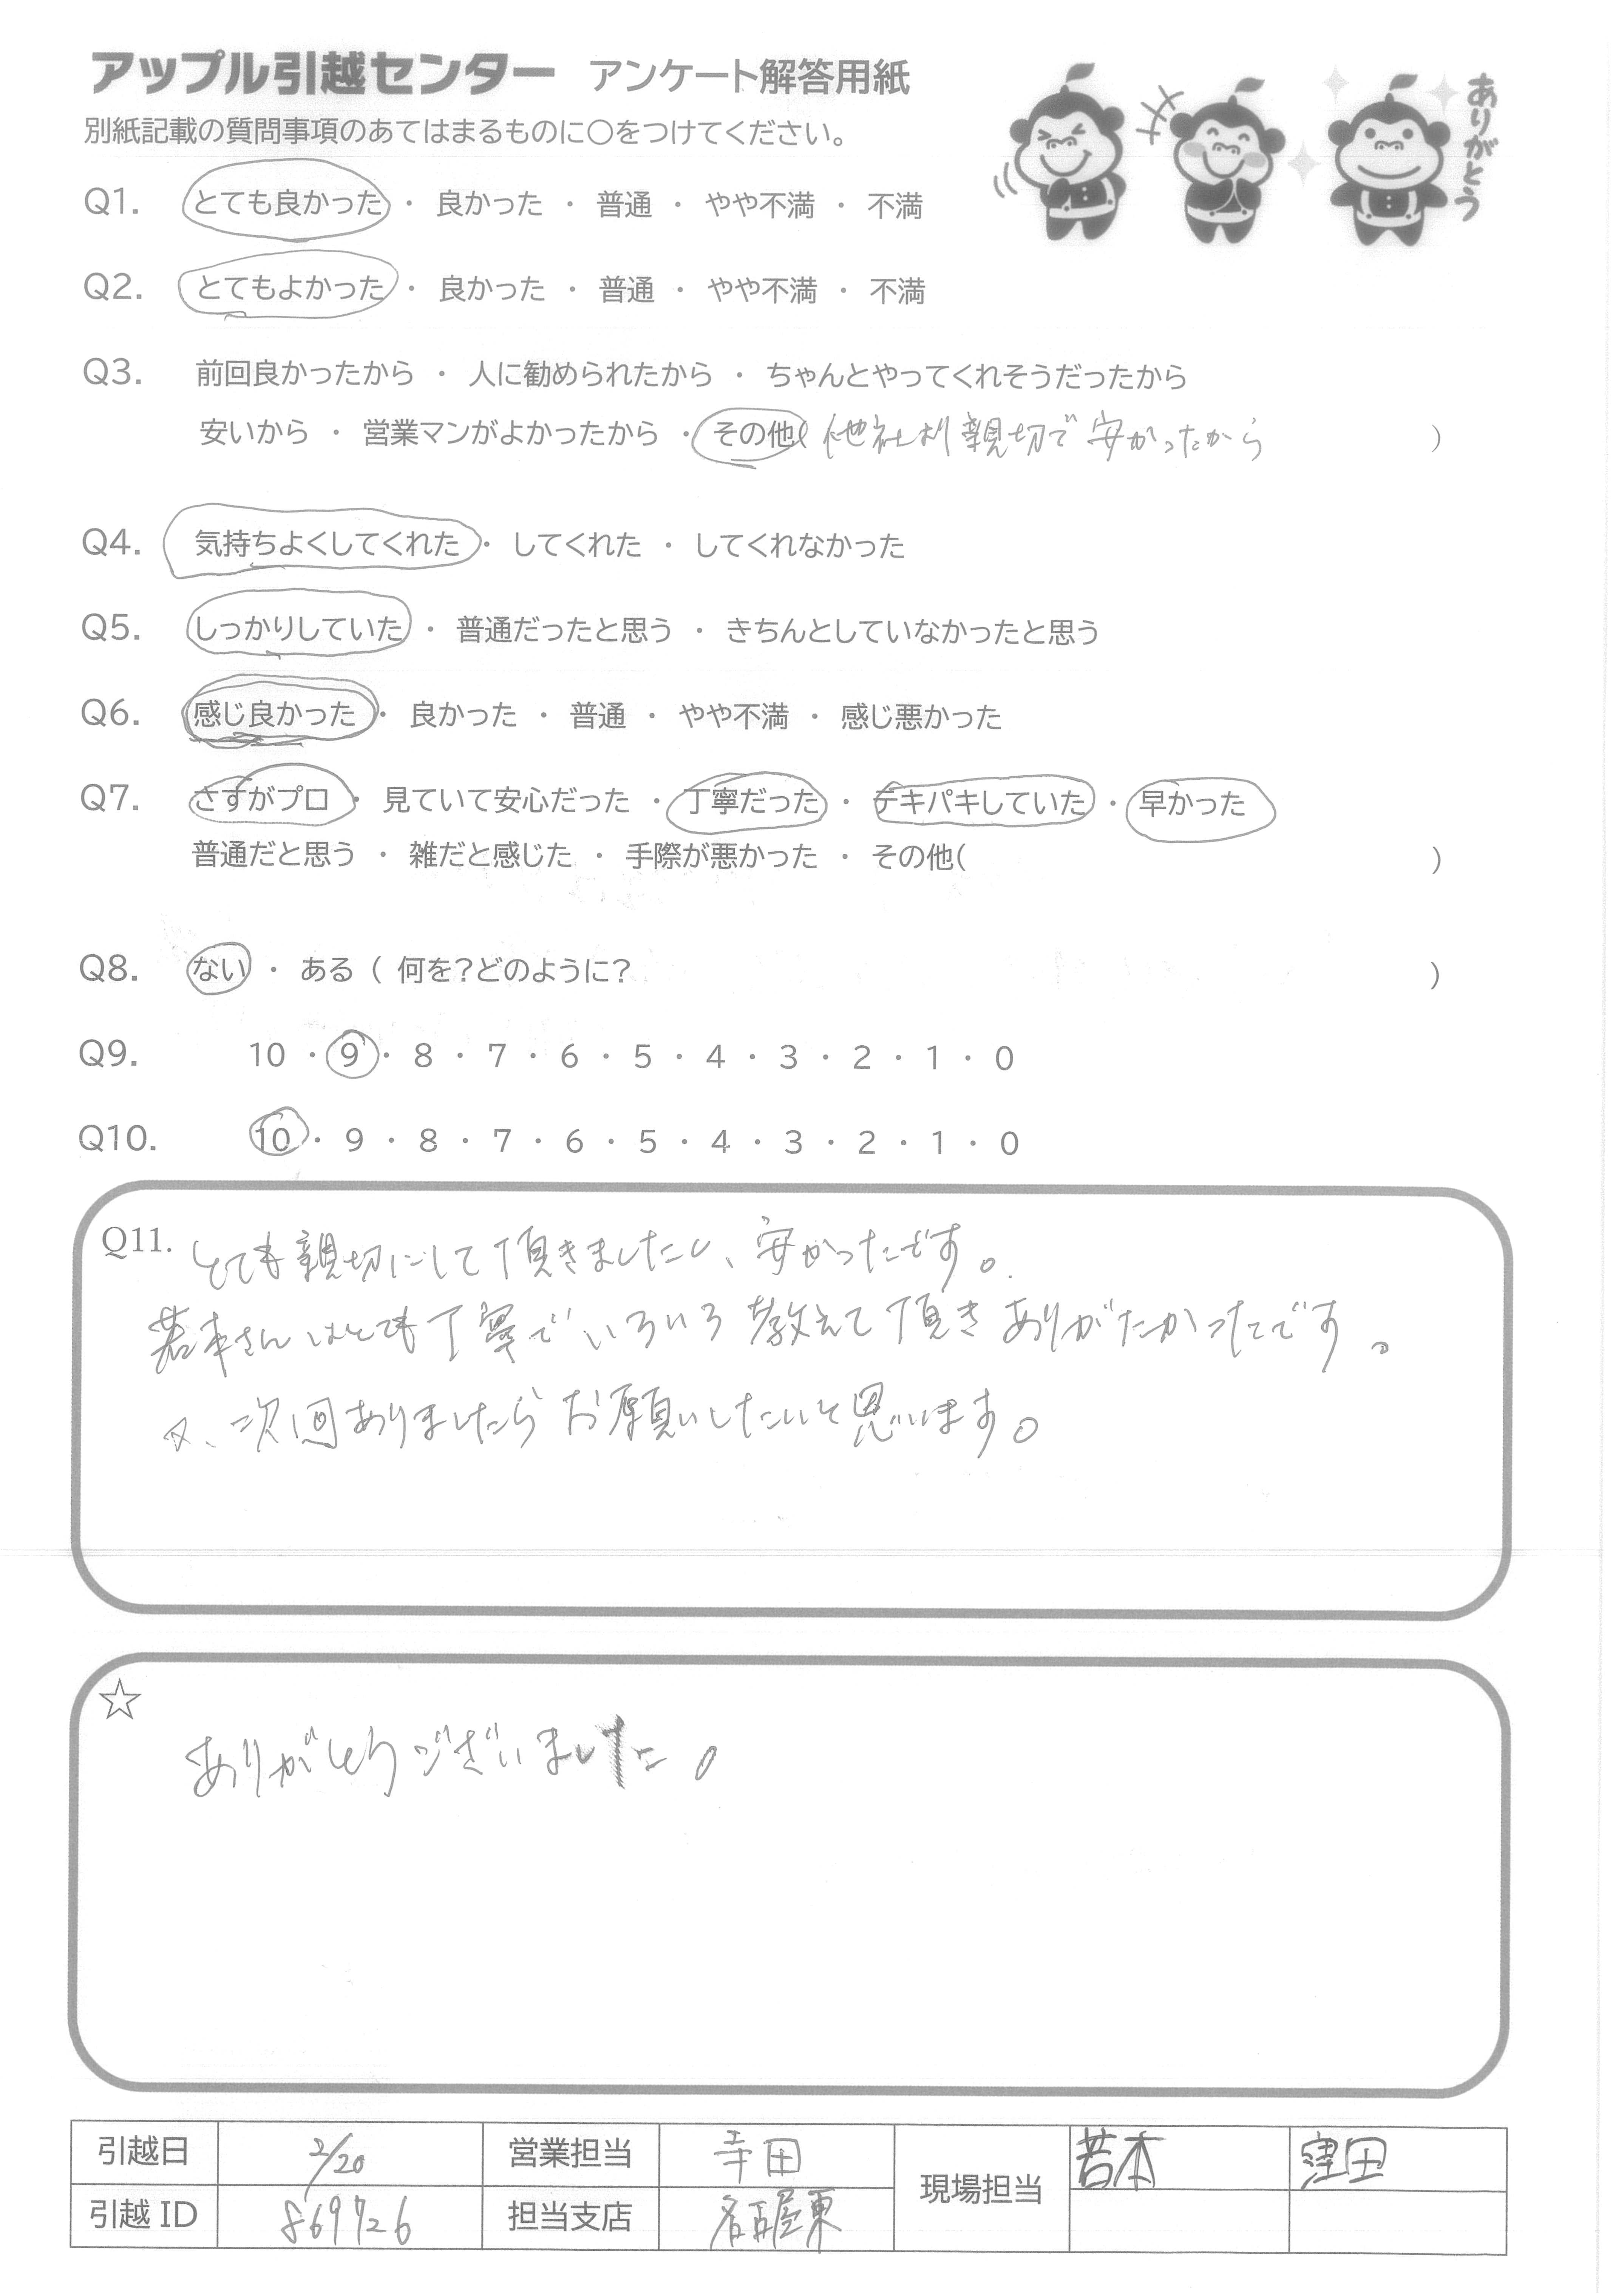 アップル引越センター アンケート解答用紙
別紙記載の質問事項のあてはまるものに〇をつけてください。
ありがとう
Q1. とても良かった ・ 良かった ・ 普通 ・ やや不満 ・ 不満
Q2. とてもよかった ・ 良かった ・ 普通 ・ やや不満 ・ 不満
Q3. 前回良かったから ・ 人に勧められたから ・ ちゃんとやってくれそうだったから
安いから ・ 営業マンがよかったから ・ その他( 他社より親切で安かったから )
Q4. 気持ちよくしてくれた ・ してくれた ・ してくれなかった
Q5. しっかりしていた ・ 普通だったと思う ・ きちんとしていなかったと思う
Q6. 感じ良かった ・ 良かった ・ 普通 ・ やや不満 ・ 感じ悪かった
Q7. さすがプロ ・ 見ていて安心だった ・ 丁寧だった ・ テキパキしていた ・ 早かった
普通だと思う ・ 雑だと感じた ・ 手際が悪かった ・ その他( )
Q8. ない ・ ある ( 何を?どのように? )
Q9. 10 ・ 9 ・ 8 ・ 7 ・ 6 ・ 5 ・ 4 ・ 3 ・ 2 ・ 1 ・ 0
Q10. 10 ・ 9 ・ 8 ・ 7 ・ 6 ・ 5 ・ 4 ・ 3 ・ 2 ・ 1 ・ 0
Q11. とても親切にして頂きましたし、安かったです。
若本さんはとても丁寧でいろいろ教えて頂きありがたかったです。
又、次回ありましたらお願いしたいと思います。
☆
ありがとうございました。
引越日 2/20 営業担当 寺田 現場担当 若本 窪田
引越ID 869726 担当支店 名古屋東